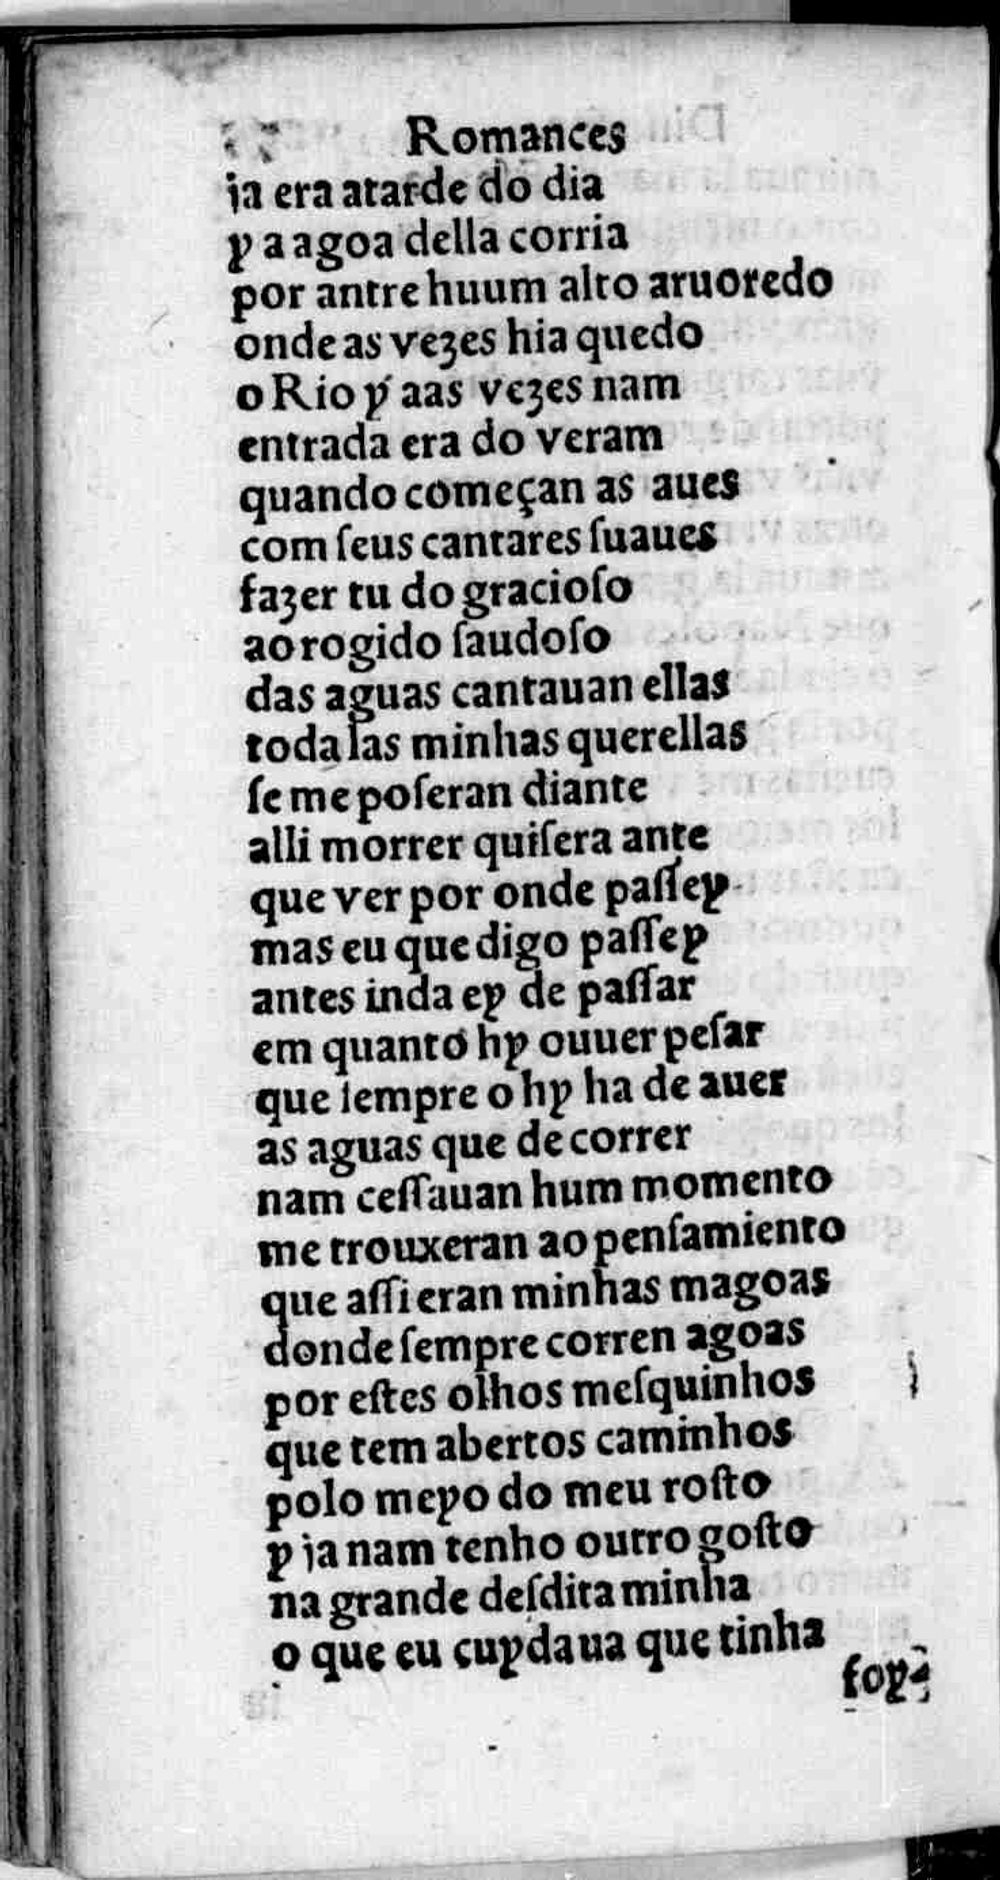 Romances
ia era atarde do dia
y a agoa della corria
por antre huum alto aruoredo
onde as vezes hia quedo
o Rio y aas vezes nam
entrada era do veram
quando começan as aues
com ſeus cantares ſuaues
fazer tu do gracioſo
ao rogido ſaudoſo
das aguas cantauan ellas
toda las minhas querellas
ſe me poſeran diante
alli morrer quiſera ante
que ver por onde paſſey
mas eu que digo paſſey
antes inda ey de paſſar
em quanto hy ouuer peſar
que ſempre o hy ha de auer
as aguas que de correr
nam ceſſauan hum momento
me trouxeran ao penſamiento
que aſſi eran minhas magoas
donde ſempre corren agoas
por eſtes olhos meſquinhos
que tem abertos caminhos
polo meyo do meu roſto
y ia nam tenho outro goſto
na grande deſdita minha
o que eu cuydaua que tinha
foy